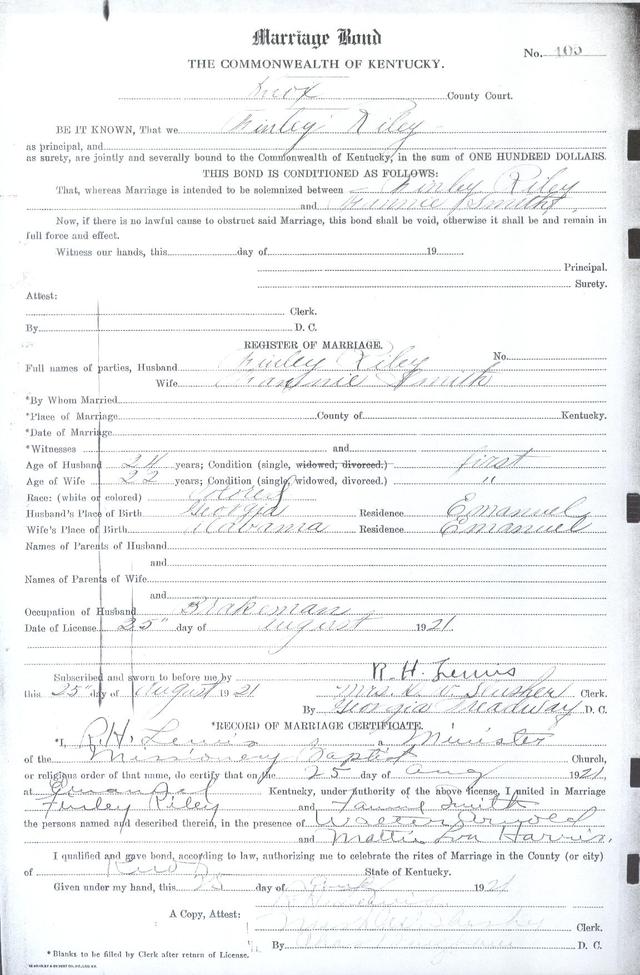 Marriage Bond
No. 105
THE COMMONWEALTH OF KENTUCKY.
Knox County Court.
BE IT KNOWN, That we Finley Riley
as principal, and
as surety, are jointly and severally bound to the Commonwealth of Kentucky, in the sum of ONE HUNDRED DOLLARS.
THIS BOND IS CONDITIONED AS FOLLOWS:
That, whereas Marriage is intended to be solemnized between Finley Riley
and Fannie Smith
Now, if there is no lawful cause to obstruct said Marriage, this bond shall be void, otherwise it shall be and remain in
full force and effect.
Witness our hands, this day of 19
Principal.
Surety.
Attest:
Clerk.
By D. C.
REGISTER OF MARRIAGE.
Full names of parties, Husband Finley Riley No.
Wife Fannie Smith
*By Whom Married
*Place of Marriage County of Kentucky.
*Date of Marriage
*Witnesses and
Age of Husband 24 years; Condition (single, widowed, divorced.) first
Age of Wife 22 years; Condition (single, widowed, divorced.) "
Race: (white or colored) Colored
Husband's Place of Birth Georgia Residence Emanuel
Wife's Place of Birth Alabama Residence Emanuel
Names of Parents of Husband
and
Names of Parents of Wife
and
Occupation of Husband Brakeman
Date of License 25" day of August 1921
Subscribed and sworn to before me by R. H. Lewis
this 25" day of August 1921 Mrs. Clerk.
By Georgia Treadway D. C.
*RECORD OF MARRIAGE CERTIFICATE.
*I, R. H. Lewis a Minister
of the Missionery Baptist Church,
or religious order of that name, do certify that on the 25 day of Aug 1921,
at Emanuel Kentucky, under authority of the above license, I united in Marriage
Finley Riley and Fannie Smith
the persons named and described therein, in the presence of Walter Arnold
and Mattie Lou Harris.
I qualified and gave bond, according to law, authorizing me to celebrate the rites of Marriage in the County (or city)
of Knox State of Kentucky.
Given under my hand, this day of 1921
R H Lewis
A Copy, Attest:
Clerk.
By D. C.
* Blanks to be filled by Clerk after return of License.